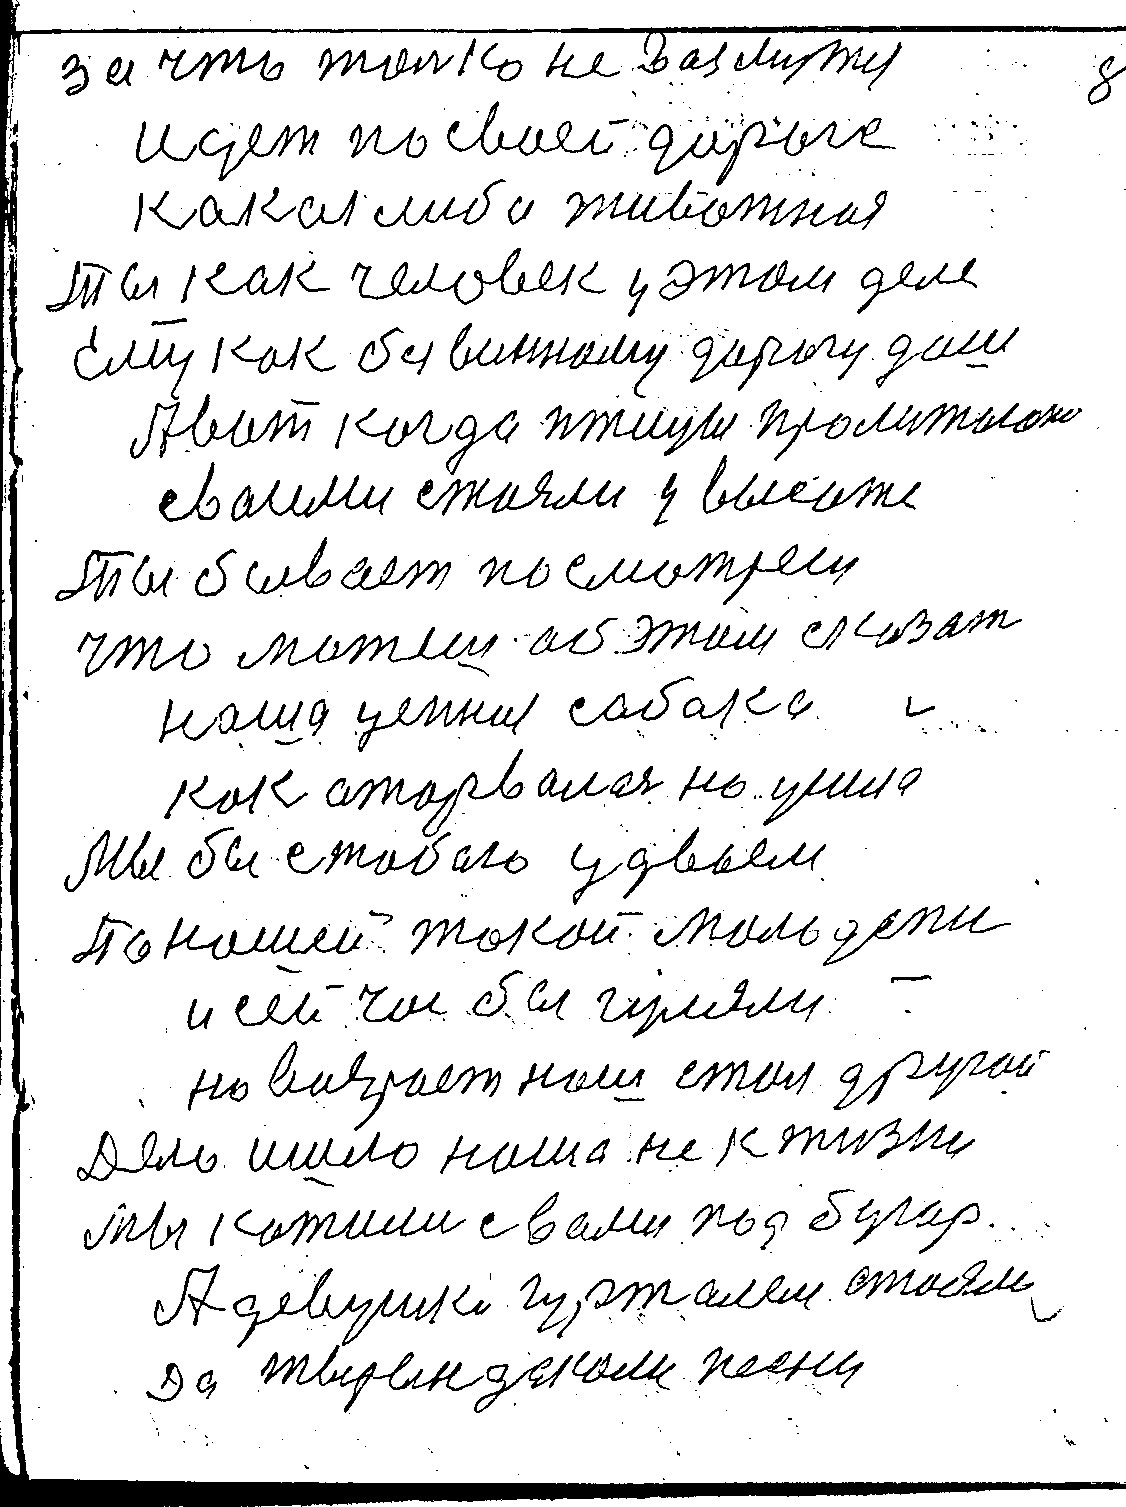 за что толко не вазмутся 8
идет по сваей дароге
какая либа животная
Ты как человек у этом деле
Ему как бы винному дарогу даш
А вот когда птицы пролитываю
сваими стаями у высате
Ты бывает посмотреш
что можеш аб этом сказат
наша цепная сабака
как аторвалая но ушла
Мы бы стабаю удваем
По нашей такой моладети
и сей час бы гуляли
но вазраст наш стал другой
Дело ишло наша не к жизни
Мы котили с вами под бугар
А девушки гурталем стаяли
Да песни